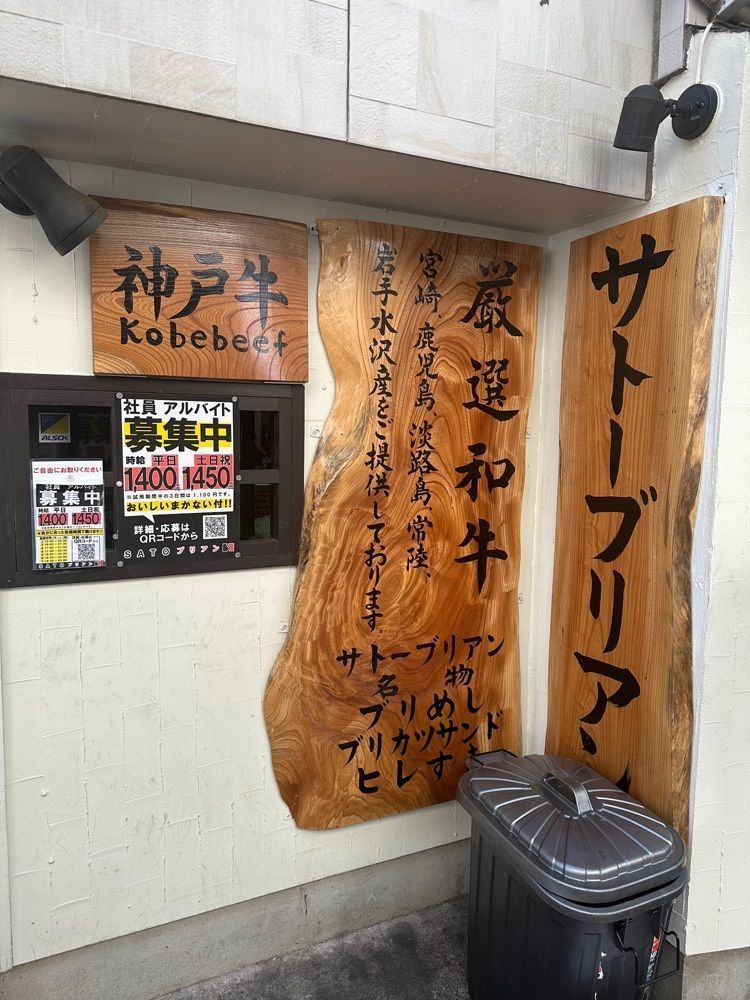 神戸牛
Kobebeef
厳選和牛
宮崎、鹿児島、淡路島、常陸、
岩手水沢産をご提供しております。
サトーブリアン
名物
ブリめし
ブリカツサンド
ヒレすき
サトーブリアン
ALSOK
社員 アルバイト
募集中
時給 平日 土日祝
1,400 1,450
※試用期間中の3日間は1,100円です。
おいしいまかない付!!
詳細・応募は
QRコードから
SATOブリアン
ご自由にお取りください
社員 アルバイト
募集中
時給 平日 土日祝
1400 1450